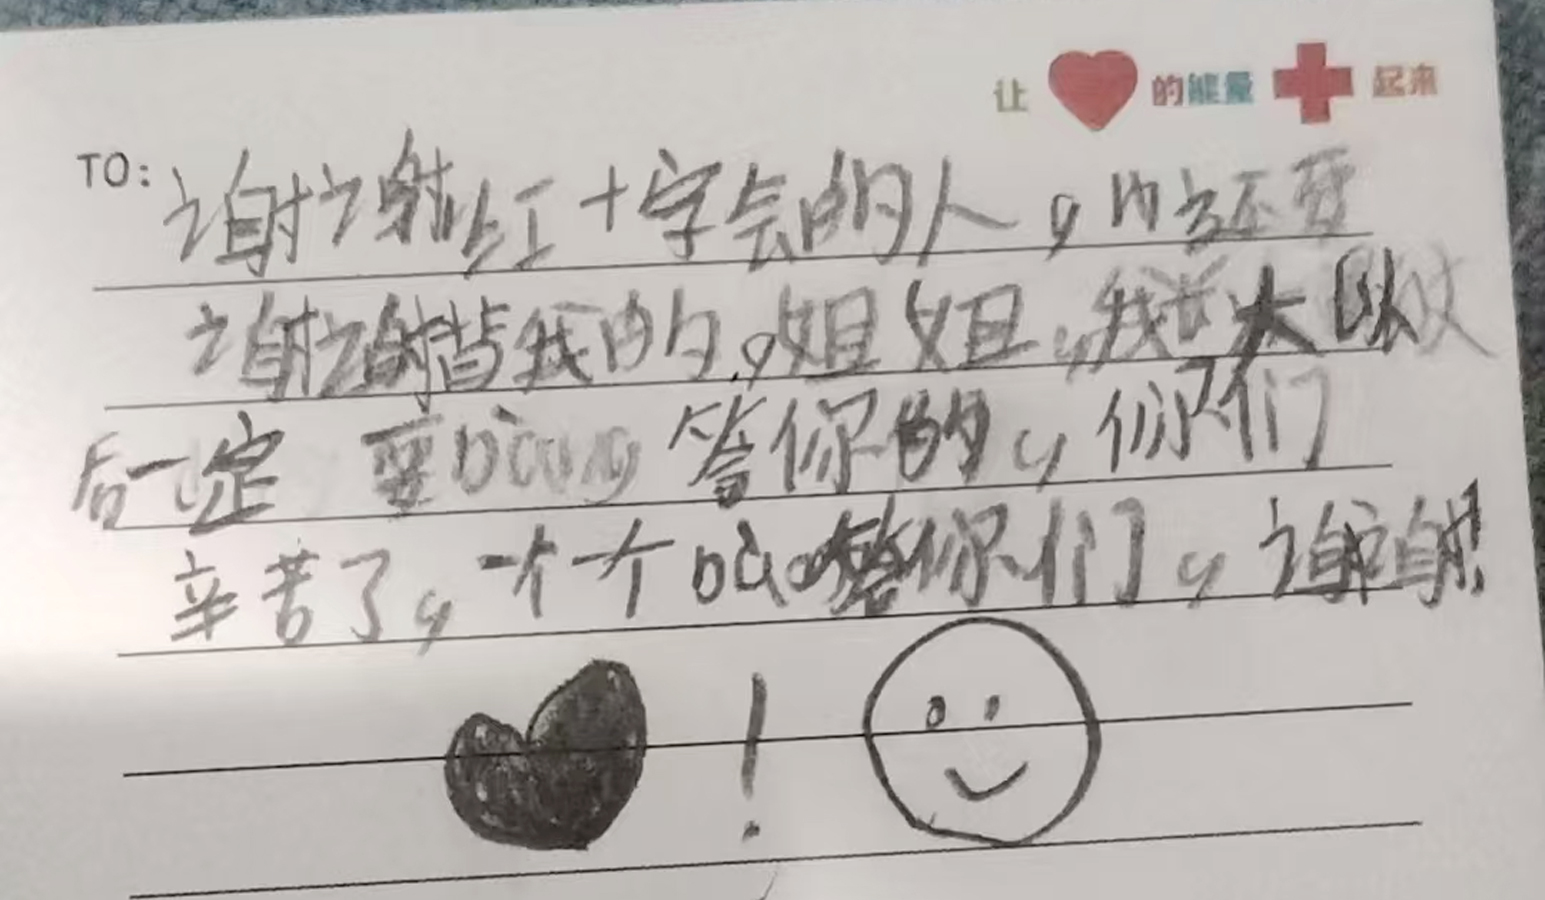 让❤的能量✚起来
TO: 谢谢红十字会的人,内家还要
谢谢背我的,姐姐,我长大以
后一定要bào答你的,你们
辛苦了,一个个bào答你们,谢谢!
!